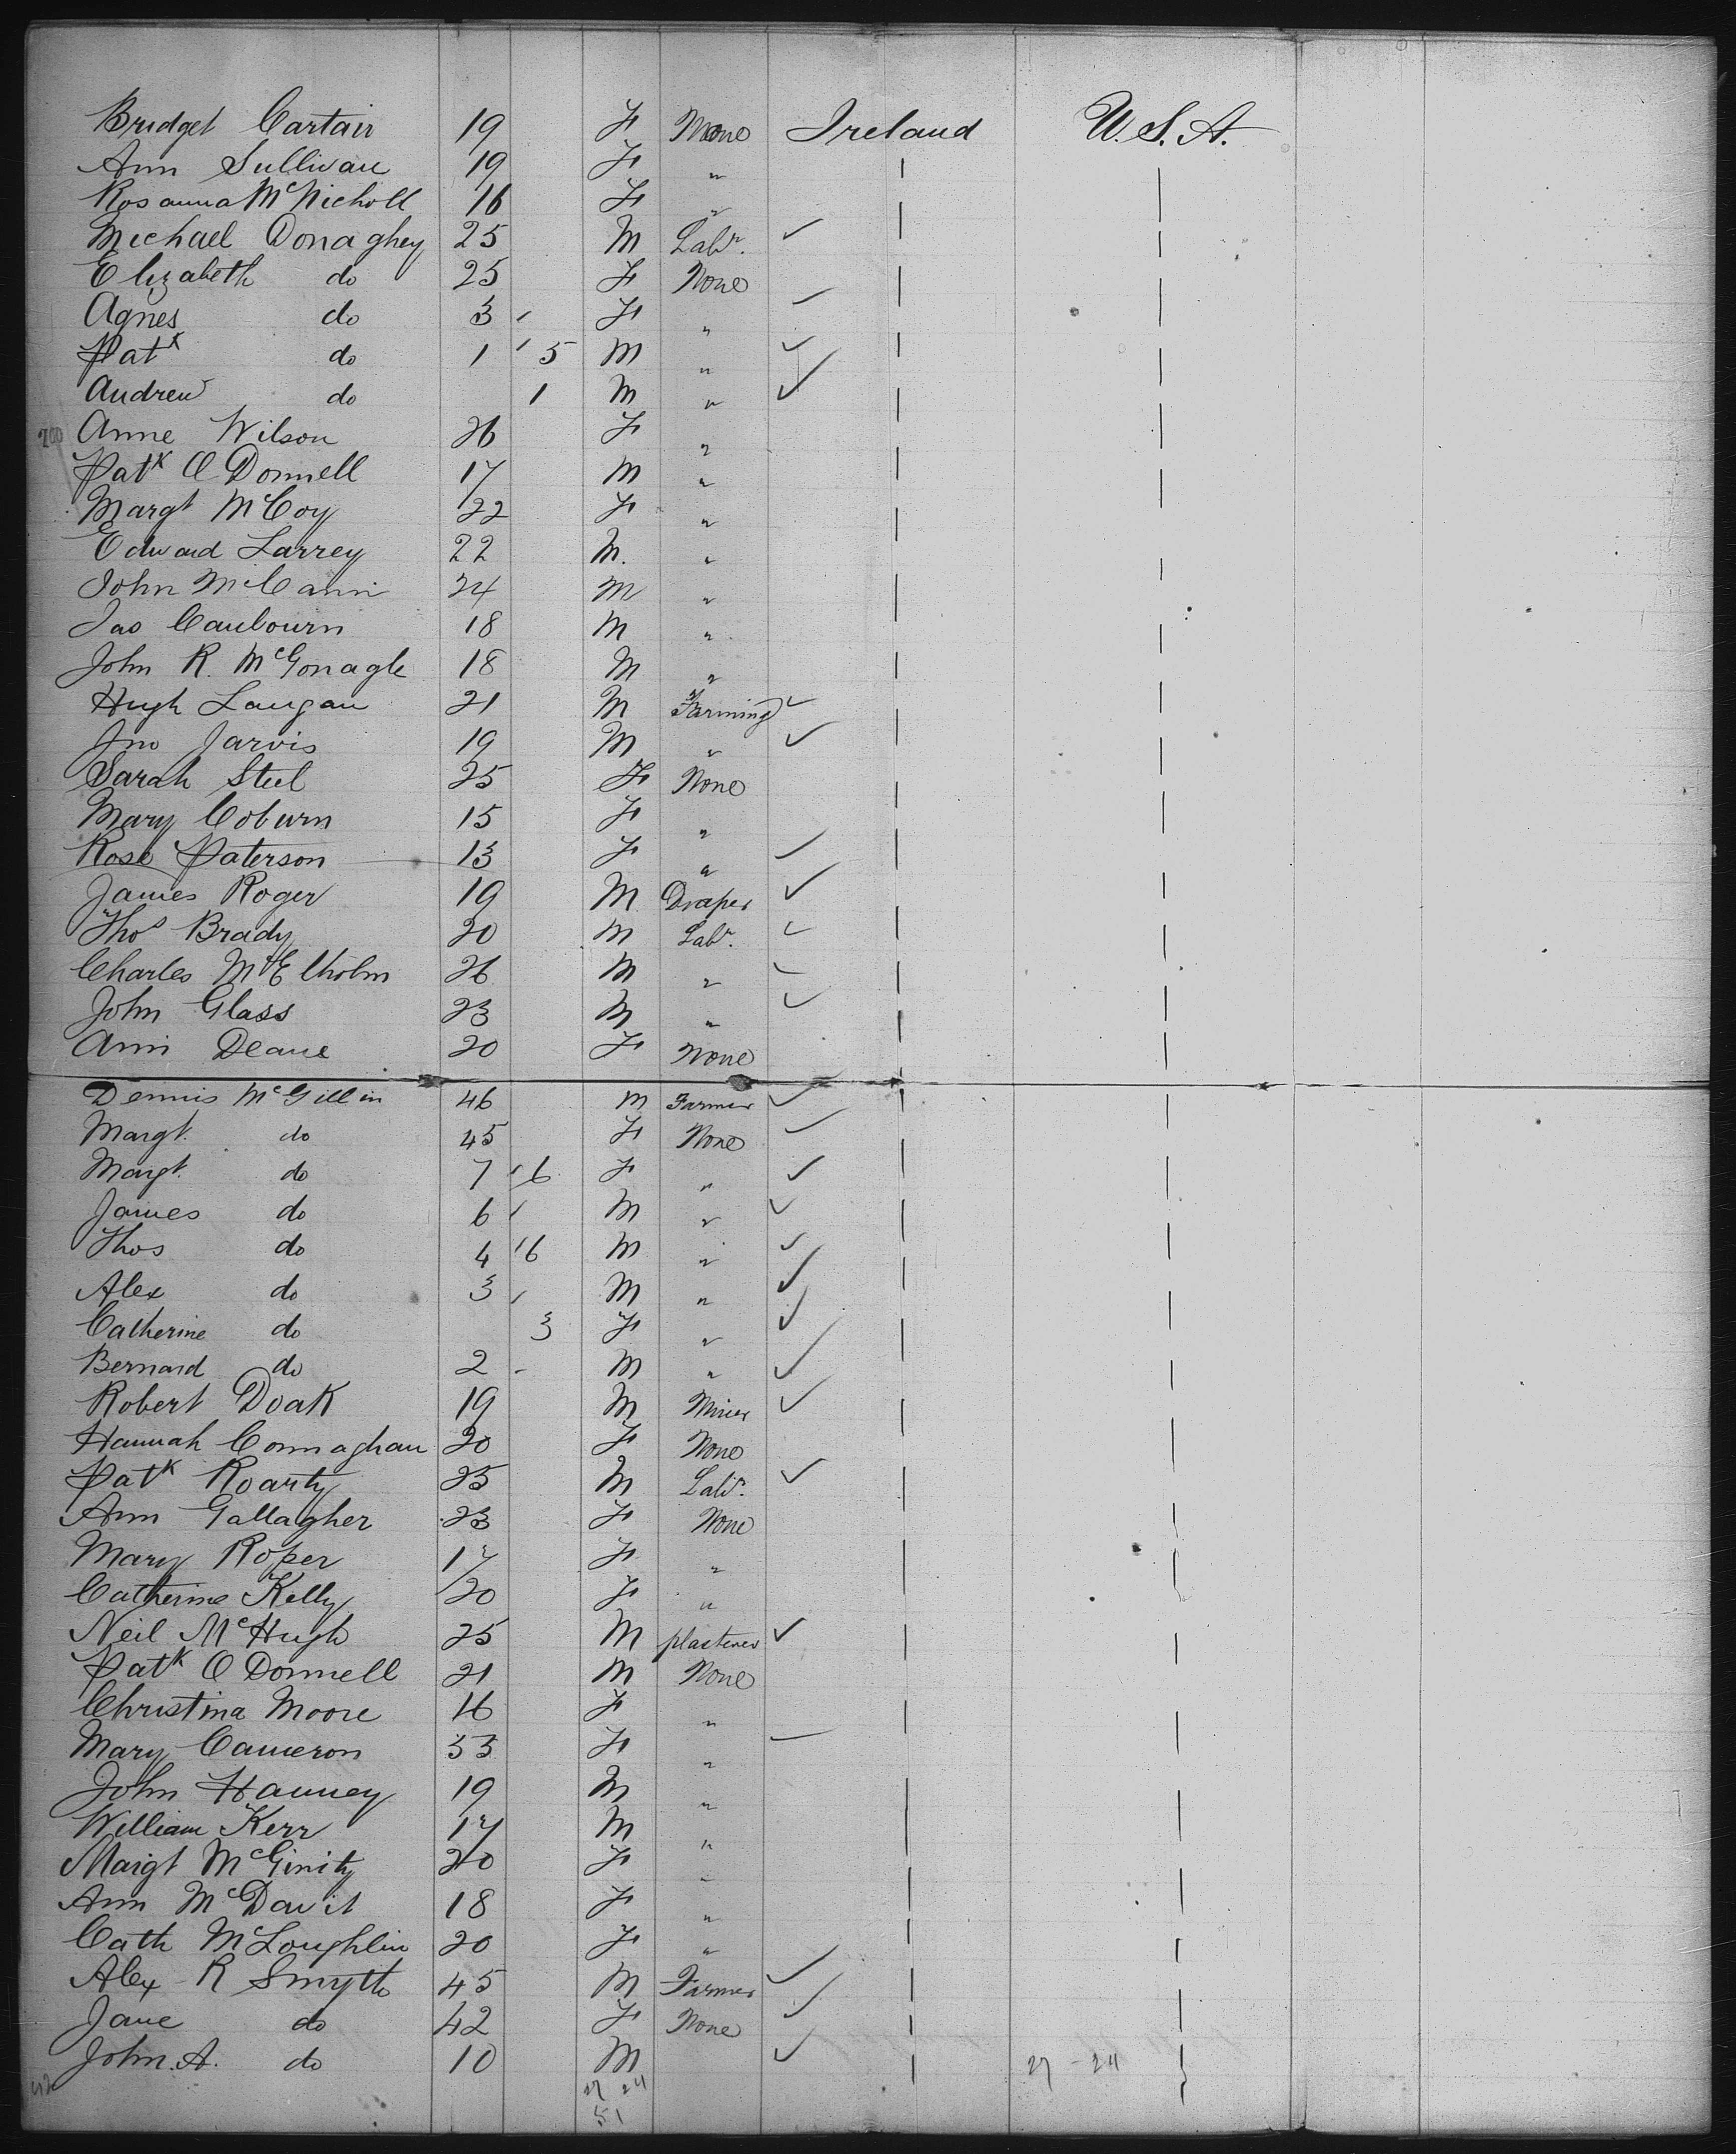 Bridget Cartair 19 F None Ireland U.S.A.
Ann Sullivan 19 F "
Rosanna McNicholl 16 F "
Michael Donaghey 25 M Labr. ✓
Elizabeth do 25 F None
Agnes do 3 F " ✓
Patk do 1 5 M " ✓
Andrew do 1 M " ✓
200 Anne Wilson 26 F "
Patk O Donnell 17 M "
Margt McCoy 22 F "
Edward Larrey 22 M. "
John McCann 24 M "
Jas Caubourn 18 M "
John R. McGonagle 18 M "
Hugh Langan 21 M Farming ✓
Jno Jarvis 19 M " ✓
Sarah Steel 25 F None
Mary Coburn 15 F "
Rose Paterson 13 F " ✓
James Roger 19 M Draper ✓
Thos Brady 20 M Labr. ✓
Charles McElholm 26 M " ✓
John Glass 23 M " ✓
Ann Deane 20 F None
Dennis McGillin 46 M Farmer ✓
Margt. do 45 F None ✓
Margt. do 7 6 F " ✓
James do 6 M " ✓
Thos do 4 6 M " ✓
Alex do 3 M " ✓
Catherine do 3 F " ✓
Bernard do 2 - M " ✓
Robert Doak 19 M Miner ✓
Hannah Connaghan 20 F None
Patk Roarty 25 M Labr. ✓
Ann Gallagher 23 F None
Mary Roper 17 F "
Catherine Kelly 20 F "
Neil McHugh 25 M plasterer ✓
Patk O Donnell 21 M None
Christina Moore 16 F "
Mary Cameron 33 F "
John Hanney 19 M "
William Kerr 17 M "
Margt McGinity 20 F "
Ann McDavit 18 F "
Cath McLoughlin 20 F "
Alex R Smyth 45 M Farmer ✓
Jane do 42 F None ✓
John. A. do 10 M ✓
27 24 27 - 24
51